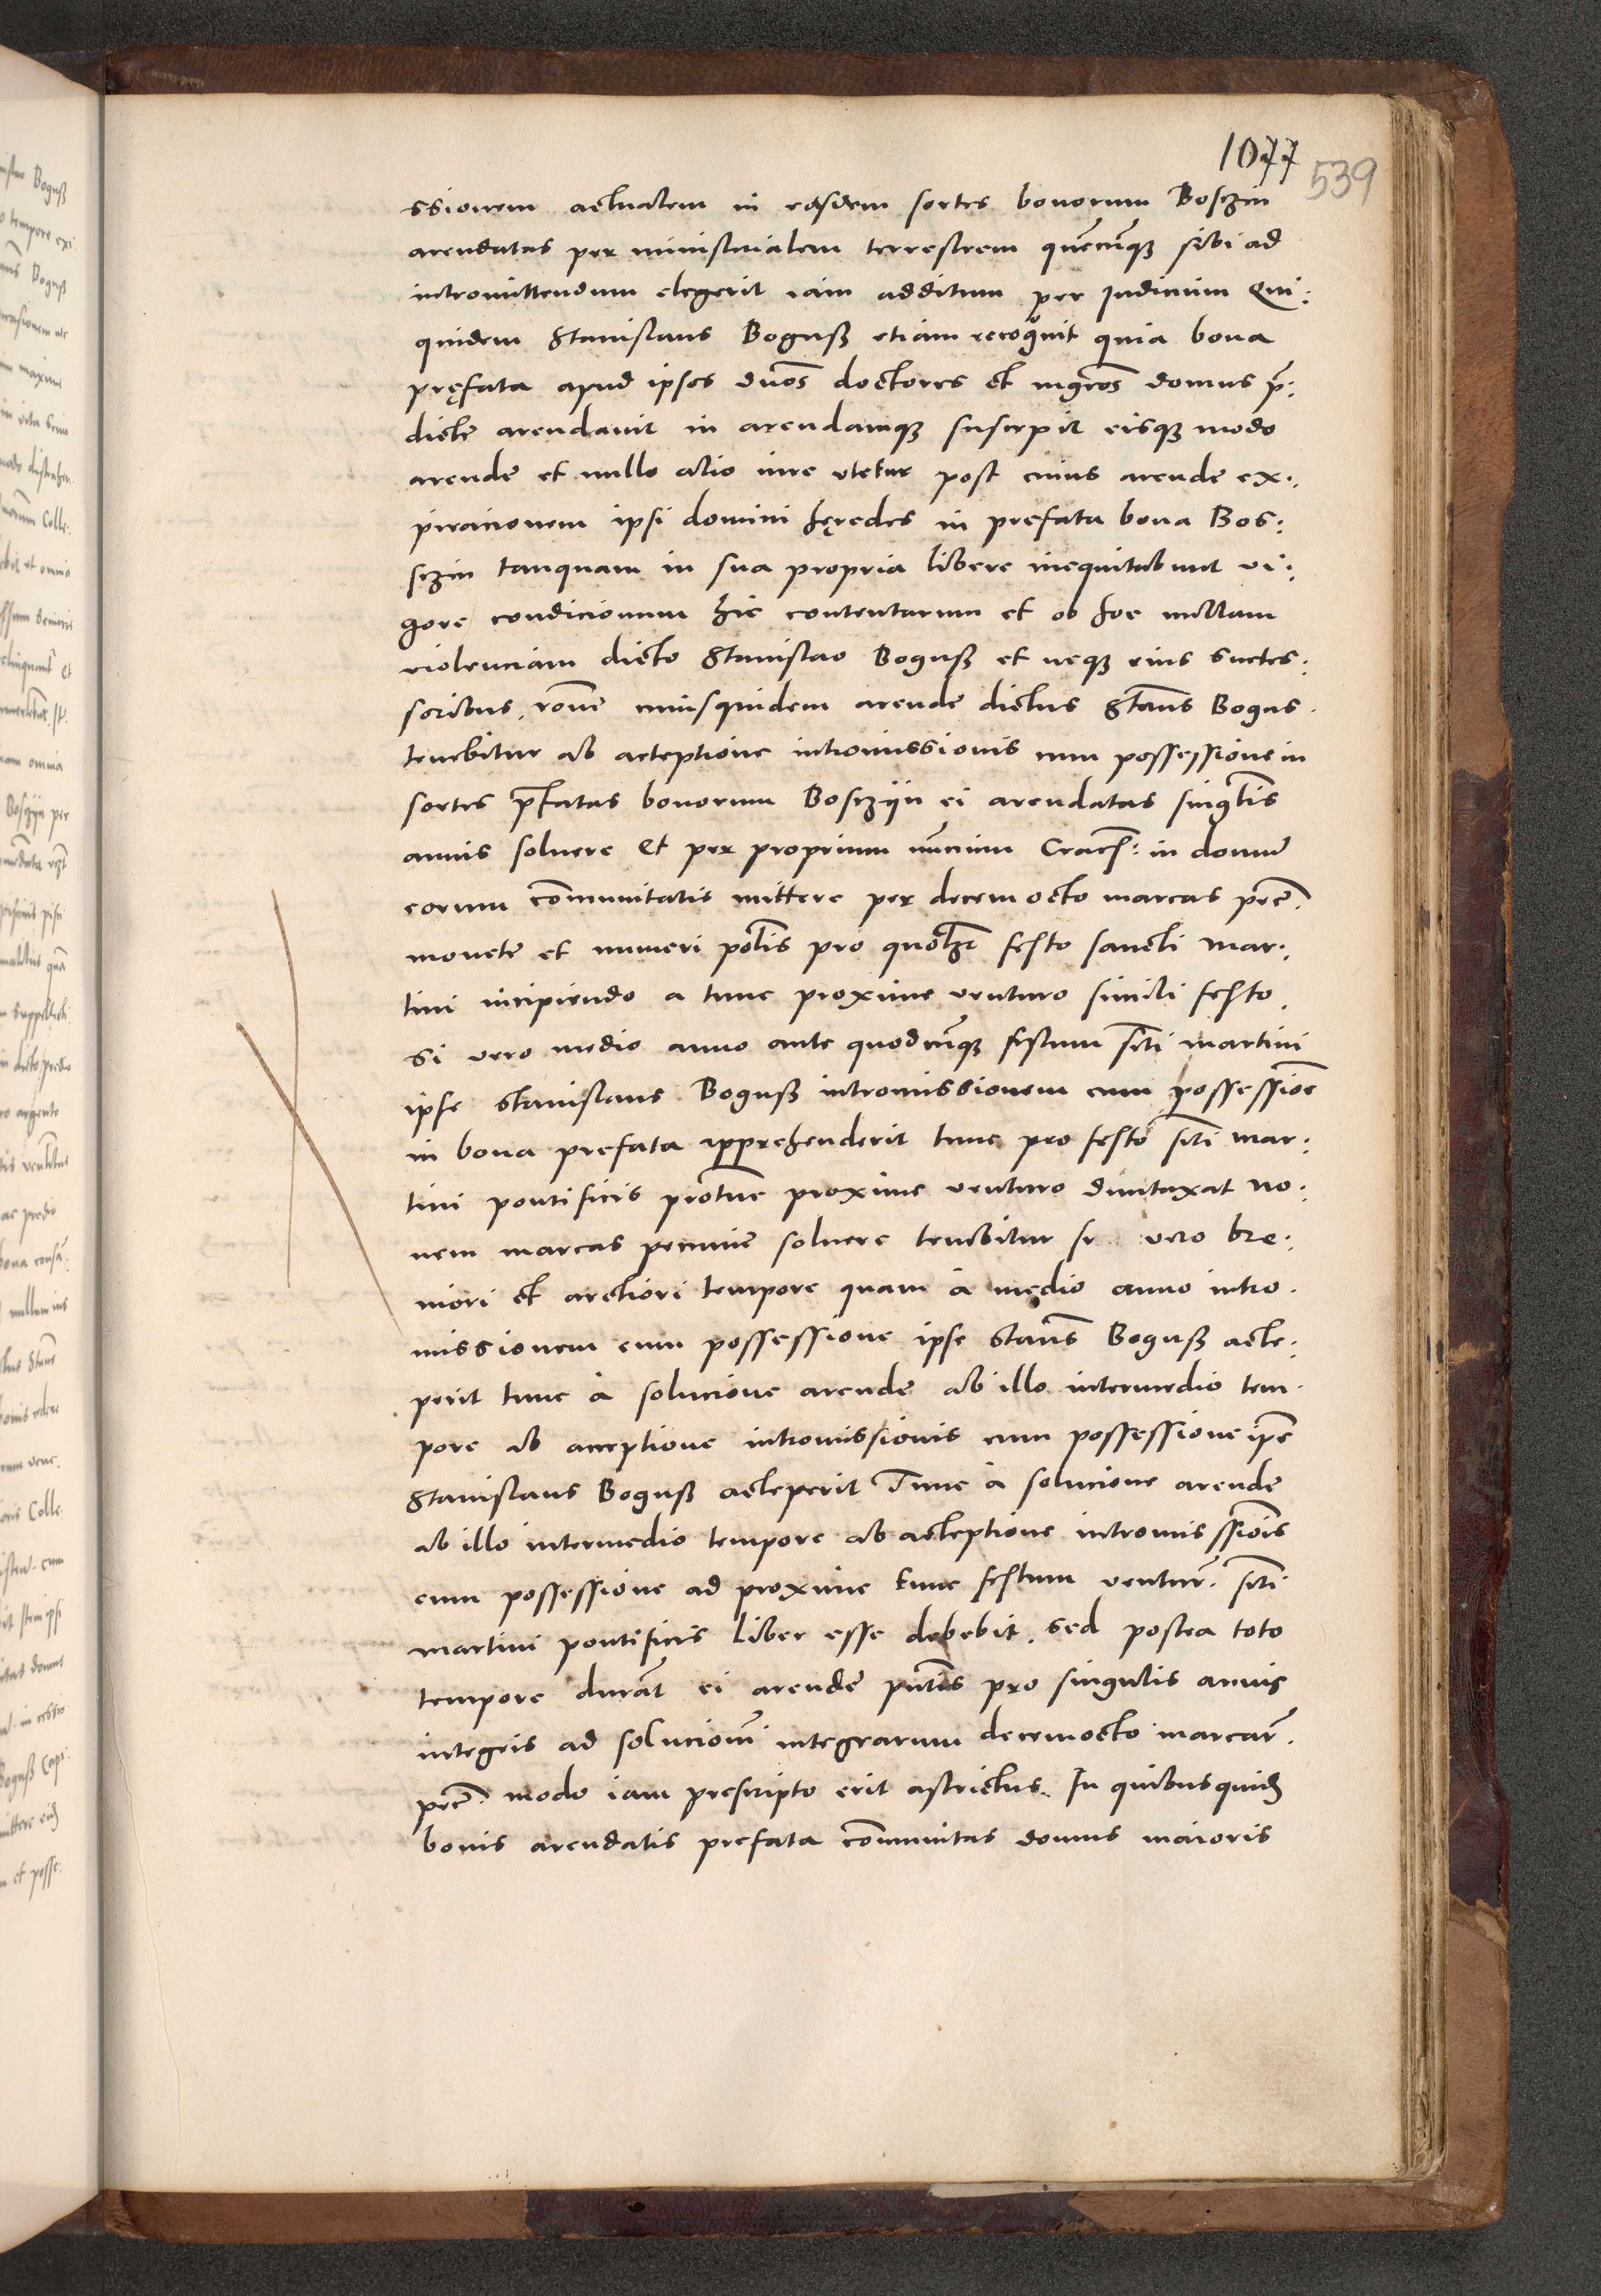 1077
539
ssionem actualem in easdem sortes bonorum Bosczin
arendatas per ministerialem terrestrem quẽcũqȝ sibi ad
intromittendum elegerit iam additum per Iudicium Qui:
quidem Stanislaus Boguß etiam recognouit quia bona
pręfata apud ipsos dños doctores et mgros domus p̃:
dictę arendauit in arendamqȝ suscepit eisqȝ modo
arendę et nullo alio iure vtetur post cuius arendę ex:
piracionem ipsi domini hęredes in prefata bona Bos:
sczin tanquam in sua propria libere inequitabunt vi:
gore condicionum hic contentarum et ob hoc nullam
violenciam dicto Stanislao Boguß et neqȝ eius succes:
soribus. rõne cuiusquidem arendę dictus Stãns Bogus
tenebitur ab acceptione intromissionis cum possessione in
sortes p̃fatas bonorum Bosczijn ei arendatas singlis
annis soluere Et per proprium nũncium Crac: in domũ
eorum cõmunitatis mittere per decem octo marcas pec̃.
monetę et numeri polis pro quolȝt festo sancti Mar:
tini incipiendo a tunc proxime venturo simili festo
si vero medio anno ante quodcũqȝ festum scti Martini
ipse Stanislaus Boguß intromissionem cum possessiõe
in bona prefata apprehenderit tunc pro festo scti Mar:
tini pontificis protunc proxime venturo duntaxat no:
uem marcas pecunię soluere tenebitur si vero bre:
uiori et arctiori tempore quam à medio anno intro:
missionem cum possessione ipse Stañs Boguß acce:
perit tunc à solucione arendę ab illo intermedio tem:
pore ab acceptione intromissionis cum possessione ip̃e
Stanislaus Boguß acceperit Tunc à solucione arendę
ab illo intermedio tempore ab acceptione intromissiõis
cum possessione ad proxime tunc festum ventur̃. scti
Martini pontificis liber esse debebit. sed postea toto
tempore durãt ei arendę pñtis pro singulis annis
integris ad solucionẽ integrarum decemocto marcar̃.
pec̃: modo iam prescripto erit astrictus. In quibusquid̃
bonis arendatis prefata cõmunitas domus maioris